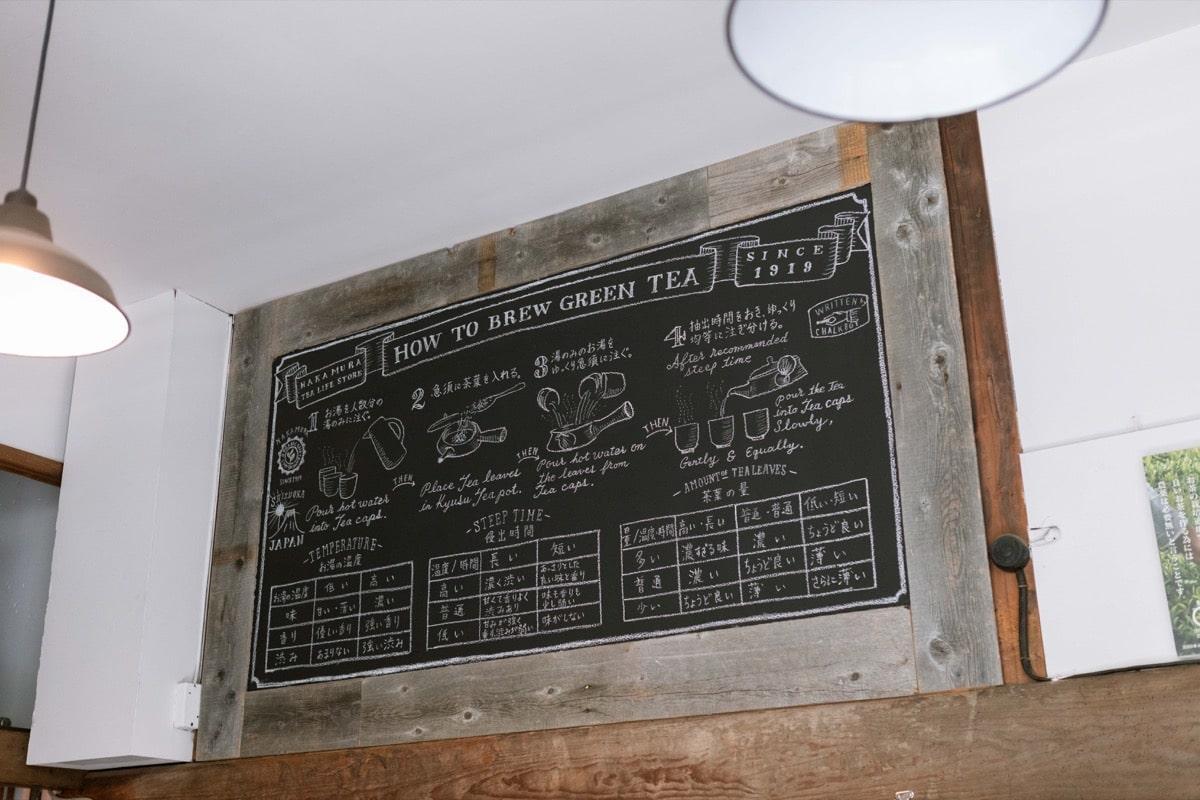 NAKAMURA
TEA LIFE STORE
HOW TO BREW GREEN TEA
SINCE
1919
WRITTEN by
CHALKBOY
NAKAMURA
SINCE 1919
SHIZUOKA
JAPAN
1
お湯を人数分の
湯のみに注ぐ。
Pour hot water
into Tea caps.
THEN
2
急須に茶葉を入れる。
Place Tea leaves
in Kyusu Tea pot.
THEN
3
湯のみのお湯を
ゆっくり急須に注ぐ。
Pour hot water on
the leaves from
Tea caps.
THEN
4
抽出時間をおき、ゆっくり
均等に注ぎ分ける。
After recommended
steep time
Pour the Tea
into Tea caps
Slowly,
Gently & Equally.
TEMPERATURE
お湯の温度
お湯の温度 低い 高い
味 甘い・薄い 濃い
香り 優しい香り 強い香り
渋み あまりない 強い渋み
STEEP TIME
浸出時間
温度/時間 長い 短い
高い 濃く渋い あっさりとした
丸い味と香り
普通 甘くて香りよく
渋みあり 味も香りも
少し弱い
低い 甘みが強く
香り、渋みが弱い 味がしない
AMOUNT OF TEA LEAVES
茶葉の量
量/温度・時間 高い・長い 普通・普通 低い・短い
多い 濃すぎる味 濃い ちょうど良い
普通 濃い ちょうど良い 薄い
少い ちょうど良い 薄い さらに薄い